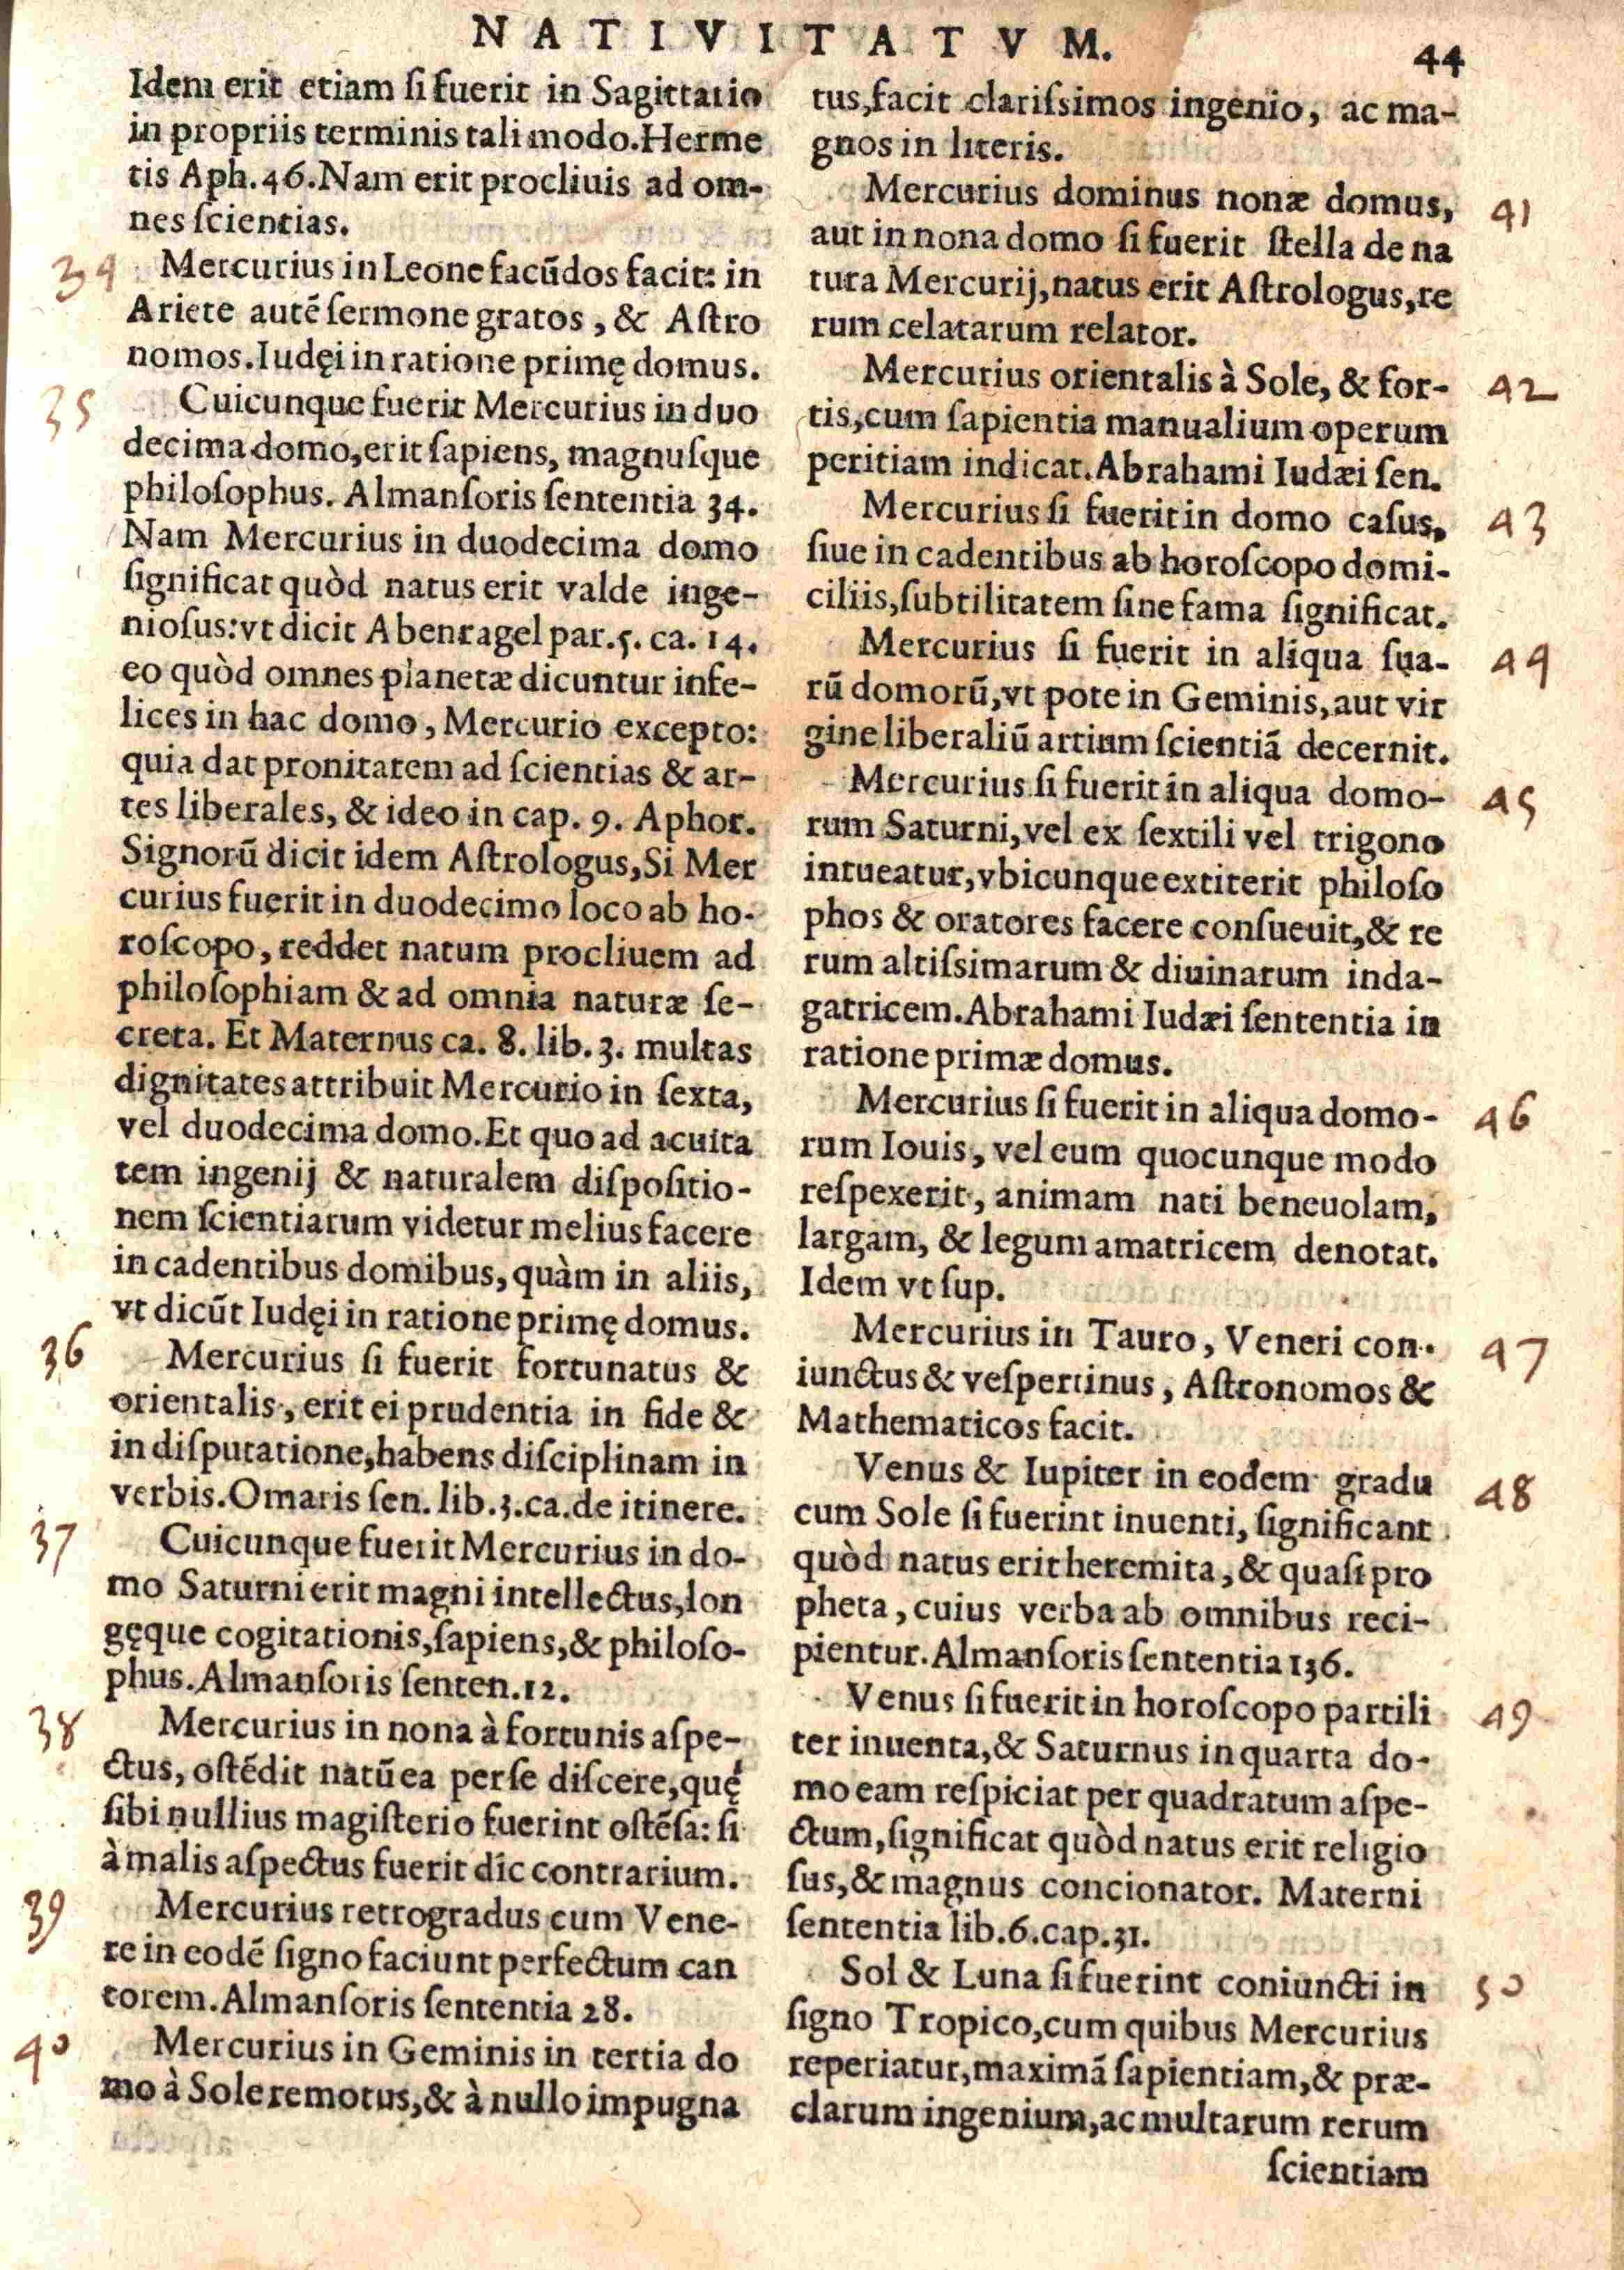 NATIVITATVM.
44
Idem erit etiam ſi fuerit in Sagittario
in propriis terminis tali modo. Herme
tis Aph. 46. Nam erit procliuis ad om-
nes ſcientias.
34
Mercurius in Leone facũdos facit: in
Ariete autẽ ſermone gratos, & Aſtro
nomos. Iudęi in ratione primę domus.
35
Cuicunque fuerit Mercurius in duo
decima domo, erit ſapiens, magnuſque
philoſophus. Almanſoris ſententia 34.
Nam Mercurius in duodecima domo
ſignificat quòd natus erit valde inge-
nioſus: vt dicit Abenragel par. 5. ca. 14.
eo quòd omnes planetæ dicuntur infe-
lices in hac domo, Mercurio excepto:
quia dat pronitatem ad ſcientias & ar-
tes liberales, & ideo in cap. 9. Aphor.
Signorũ dicit idem Aſtrologus, Si Mer
curius fuerit in duodecimo loco ab ho-
roſcopo, reddet natum procliuem ad
philoſophiam & ad omnia naturæ ſe-
creta. Et Maternus ca. 8. lib. 3. multas
dignitates attribuit Mercurio in ſexta,
vel duodecima domo. Et quo ad acuita
tem ingenij & naturalem diſpoſitio-
nem ſcientiarum videtur melius facere
in cadentibus domibus, quàm in aliis,
vt dicũt Iudęi in ratione primę domus.
36
Mercurius ſi fuerit fortunatus &
orientalis, erit ei prudentia in fide &
in diſputatione, habens diſciplinam in
verbis. Omaris ſen. lib. 3. ca. de itinere.
37
Cuicunque fuerit Mercurius in do-
mo Saturni erit magni intellectus, lon
gęque cogitationis, ſapiens, & philoſo-
phus. Almanſoris ſenten. 12.
38
Mercurius in nona à fortunis aſpe-
ctus, oſtẽdit natũ ea per ſe diſcere, quę
ſibi nullius magiſterio fuerint oſtẽſa: ſi
à malis aſpectus fuerit dic contrarium.
39
Mercurius retrogradus cum Vene-
re in eodẽ ſigno faciunt perfectum can
torem. Almanſoris ſententia 28.
40
Mercurius in Geminis in tertia do
mo à Sole remotus, & à nullo impugna
tus, facit clariſsimos ingenio, ac ma-
gnos in literis.
41
Mercurius dominus nonæ domus,
aut in nona domo ſi fuerit ſtella de na
tura Mercurij, natus erit Aſtrologus, re
rum celatarum relator.
42
Mercurius orientalis à Sole, & for-
tis, cum ſapientia manualium operum
peritiam indicat. Abrahami Iudæi ſen.
43
Mercurius ſi fuerit in domo caſus,
ſiue in cadentibus ab horoſcopo domi-
ciliis, ſubtilitatem ſine fama ſignificat.
44
Mercurius ſi fuerit in aliqua ſua-
rũ domorũ, vt pote in Geminis, aut vir
gine liberaliũ artium ſcientiã decernit.
45
Mercurius ſi fuerit in aliqua domo-
rum Saturni, vel ex ſextili vel trigono
intueatur, vbicunque extiterit philoſo
phos & oratores facere conſueuit, & re
rum altiſsimarum & diuinarum inda-
gatricem. Abrahami Iudæi ſententia in
ratione primæ domus.
46
Mercurius ſi fuerit in aliqua domo-
rum Iouis, vel eum quocunque modo
reſpexerit, animam nati beneuolam,
largam, & legum amatricem denotat.
Idem vt ſup.
47
Mercurius in Tauro, Veneri con-
iunctus & veſpertinus, Aſtronomos &
Mathematicos facit.
48
Venus & Iupiter in eodem gradu
cum Sole ſi fuerint inuenti, ſignificant
quòd natus erit heremita, & quaſi pro
pheta, cuius verba ab omnibus reci-
pientur. Almanſoris ſententia 136.
49
Venus ſi fuerit in horoſcopo partili
ter inuenta, & Saturnus in quarta do-
mo eam reſpiciat per quadratum aſpe-
ctum, ſignificat quòd natus erit religio
ſus, & magnus concionator. Materni
ſententia lib. 6. cap. 31.
50
Sol & Luna ſi fuerint coniuncti in
ſigno Tropico, cum quibus Mercurius
reperiatur, maximã ſapientiam, & præ-
clarum ingenium, ac multarum rerum
ſcientiam